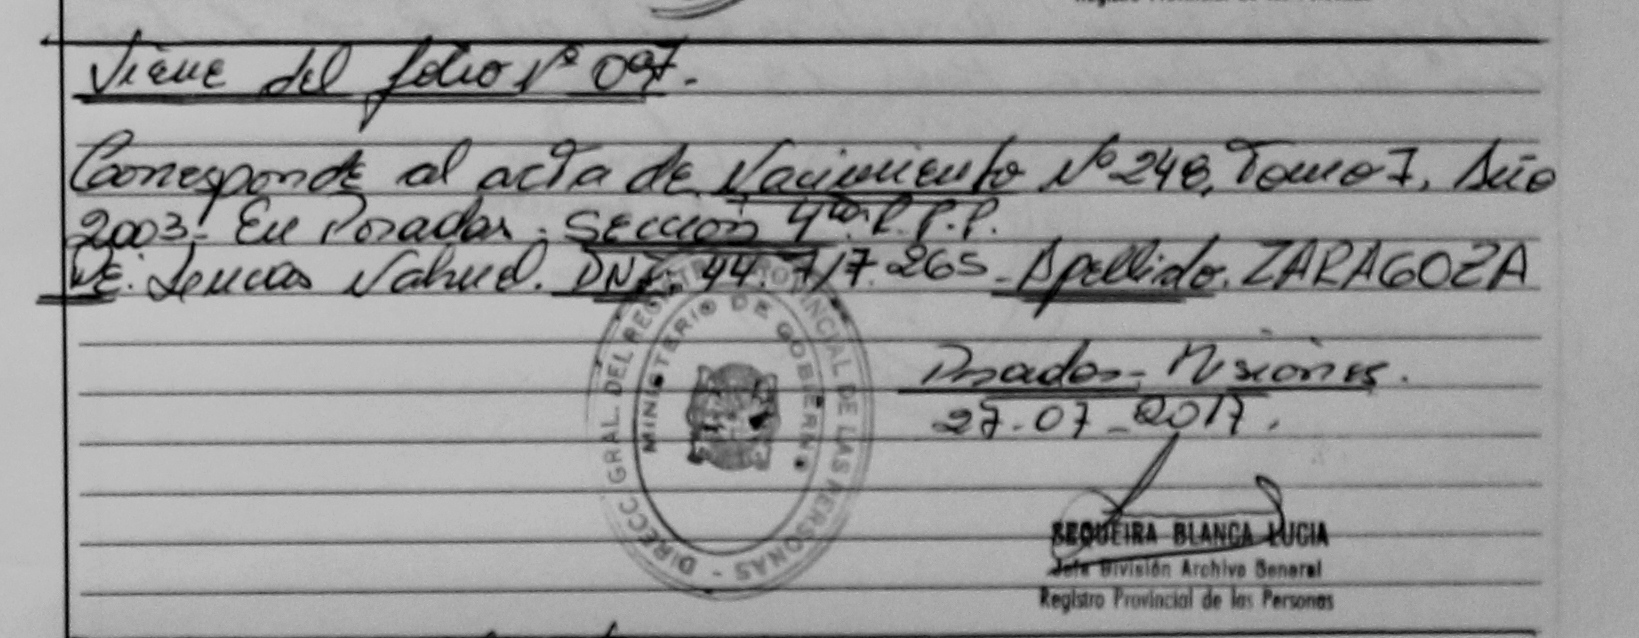 Registro Provincial de las Personas
Viene del folio Nº 097.
Corresponde al acta de Nacimiento Nº 248, Tomo I, Año
2003. En Posadas. Sección 4ta. R.P.P.
DE: Lucas Nahuel. DNI. 44.717.265 - Apellido. ZARAGOZA
Posadas - Misiones.
27-07-2017.
DIRECC GRAL. DEL REGISTRO PROVINCIAL DE LAS PERSONAS -
MINISTERIO DE GOBIERNO
SEQUEIRA BLANCA LUCIA
Jefe División Archivo General
Registro Provincial de las Personas